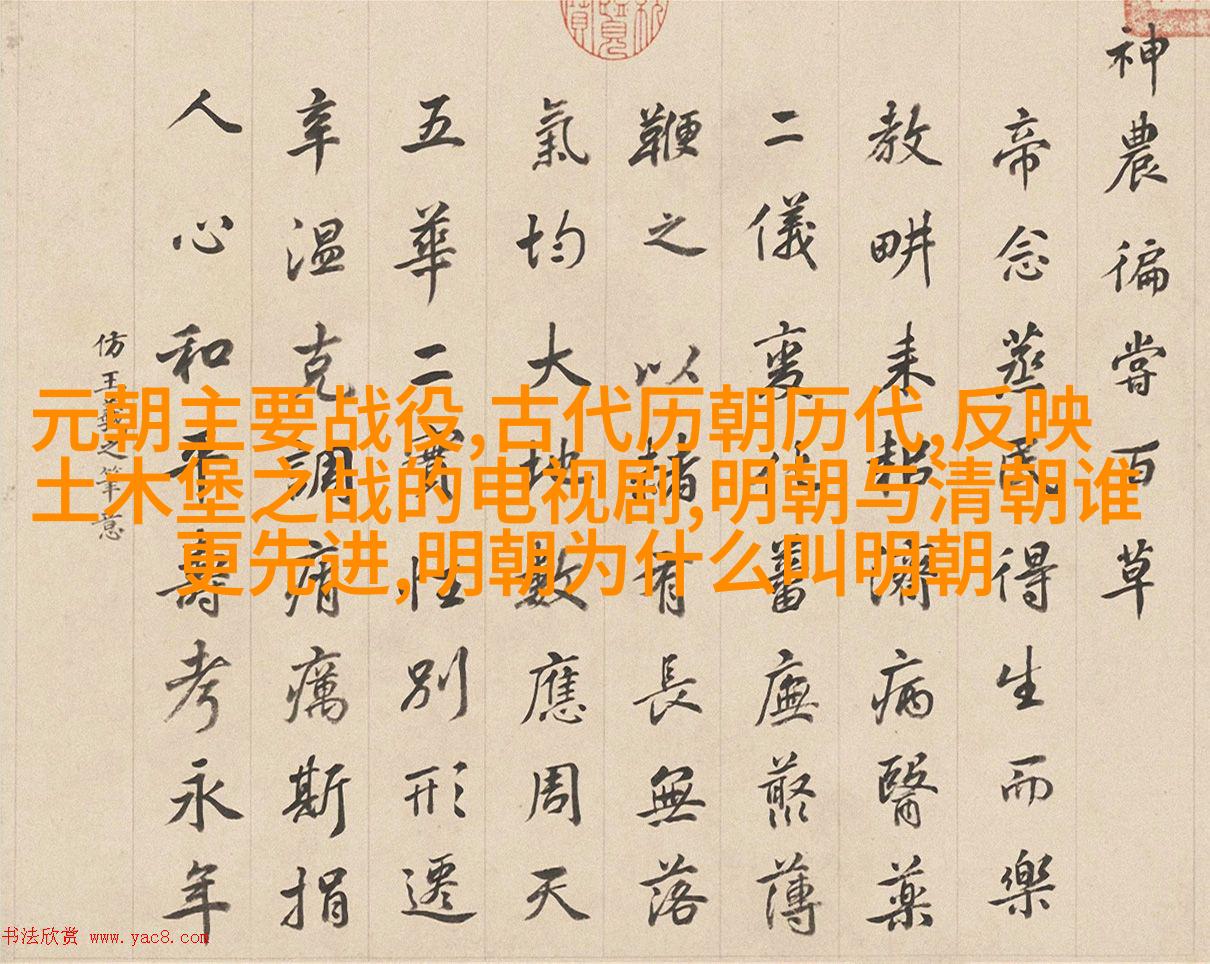 神農徧嘗百草
帝念蒸民得生而樂
教畊耒耜濟病醫藥
二儀變化蕃廡叢薄
鞭之以赭有長無落
氣均大地數應周天
五華二性別形遷
辛溫克調痟癘斯捐
人心和平壽考永年
仿王羲之筆意
元朝主要战役,古代历朝历代,反映
土木堡之战的电视剧,明朝与清朝谁
更先进,明朝为什么叫明朝
书法欣赏 www.yac8.com